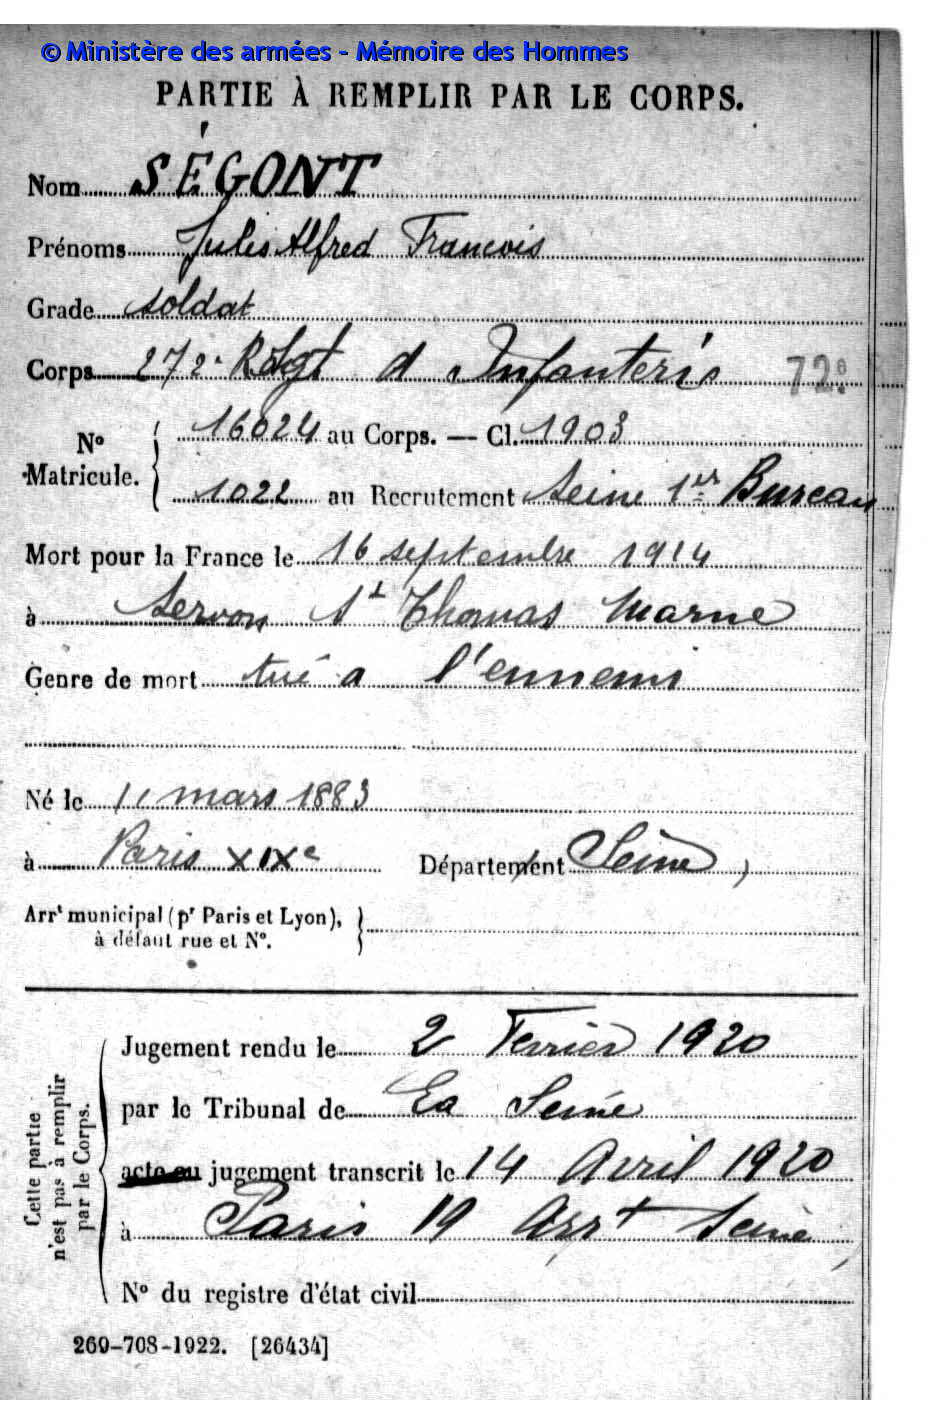 © Ministère des armées - Mémoire des Hommes
PARTIE À REMPLIR PAR LE CORPS.
Nom SÉGONT
Prénoms Jules Alfred Francois
Grade soldat
Corps 272e Régt d Infanterie 72e
N° Matricule. { 16024 au Corps. — Cl. 1903
1022 au Recrutement Seine 1er Bureau
Mort pour la France le 16 septembre 1914
à Servon St Thomas Marne
Genre de mort tué a l'ennemi
Né le 11 mars 1883
à Paris XIXe Département Seine
Arrt municipal (pr Paris et Lyon), }
à défaut rue et N°.
Cette partie n'est pas à remplir par le Corps.
Jugement rendu le 2 Fevrier 1920
par le Tribunal de La Seine
acte ou jugement transcrit le 14 Avril 1920
à Paris 19 Arrt Seine
N° du registre d'état civil
269-708-1922. [26434]